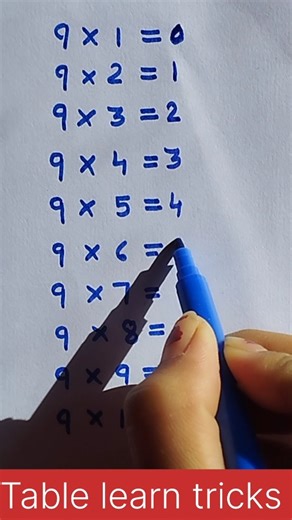 9 × 1 = 0
9 × 2 = 1
9 × 3 = 2
9 × 4 = 3
9 × 5 = 4
9 × 6 =
9 × 7 =
9 × 8 =
9 × 9 =
9 × 1
Table learn tricks